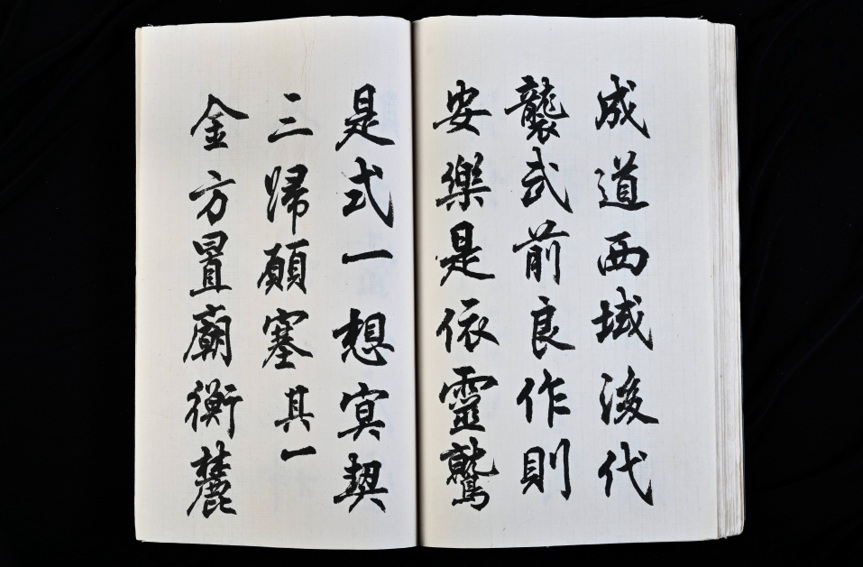 成道西域浚代
襲武前良作則
安樂是依靈鷲
是式一想冥契
三歸願塞其一
金方置廟衡麓